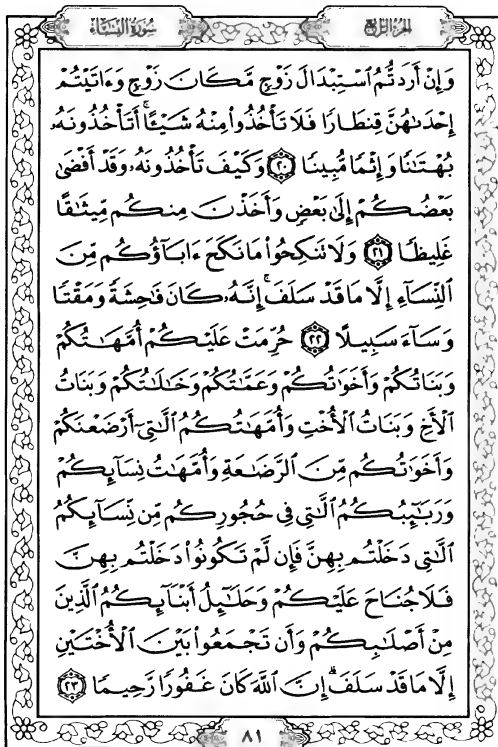 سُورَةُ النِّسَاءِ
الجزء الرابع
وَإِنْ أَرَدتُّمُ ٱسْتِبْدَالَ زَوْجٍ مَّكَانَ زَوْجٍ وَءَاتَيْتُمْ
إِحْدَىٰهُنَّ قِنطَارًا فَلَا تَأْخُذُوا۟ مِنْهُ شَيْـًٔا ۚ أَتَأْخُذُونَهُۥ
بُهْتَـٰنًا وَإِثْمًا مُّبِينًا ٢٠ وَكَيْفَ تَأْخُذُونَهُۥ وَقَدْ أَفْضَىٰ
بَعْضُكُمْ إِلَىٰ بَعْضٍ وَأَخَذْنَ مِنكُم مِّيثَـٰقًا
غَلِيظًا ٢١ وَلَا تَنكِحُوا۟ مَا نَكَحَ ءَابَآؤُكُم مِّنَ
ٱلنِّسَآءِ إِلَّا مَا قَدْ سَلَفَ ۚ إِنَّهُۥ كَانَ فَـٰحِشَةً وَمَقْتًا
وَسَآءَ سَبِيلًا ٢٢ حُرِّمَتْ عَلَيْكُمْ أُمَّهَـٰتُكُمْ
وَبَنَاتُكُمْ وَأَخَوَٰتُكُمْ وَعَمَّـٰتُكُمْ وَخَـٰلَـٰتُكُمْ وَبَنَاتُ
ٱلْأَخِ وَبَنَاتُ ٱلْأُخْتِ وَأُمَّهَـٰتُكُمُ ٱلَّـٰتِىٓ أَرْضَعْنَكُمْ
وَأَخَوَٰتُكُم مِّنَ ٱلرَّضَـٰعَةِ وَأُمَّهَـٰتُ نِسَآئِكُمْ
وَرَبَـٰٓئِبُكُمُ ٱلَّـٰتِى فِى حُجُورِكُم مِّن نِّسَآئِكُمُ
ٱلَّـٰتِى دَخَلْتُم بِهِنَّ فَإِن لَّمْ تَكُونُوا۟ دَخَلْتُم بِهِنَّ
فَلَا جُنَاحَ عَلَيْكُمْ وَحَلَـٰٓئِلُ أَبْنَآئِكُمُ ٱلَّذِينَ
مِنْ أَصْلَـٰبِكُمْ وَأَن تَجْمَعُوا۟ بَيْنَ ٱلْأُخْتَيْنِ
إِلَّا مَا قَدْ سَلَفَ ۗ إِنَّ ٱللَّهَ كَانَ غَفُورًا رَّحِيمًا ٢٣
٨١